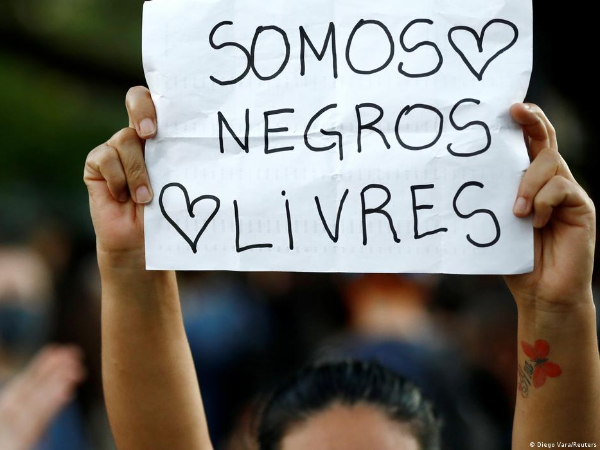 SOMOS
NEGROS
LiVRES
© Diego Vara/Reuters